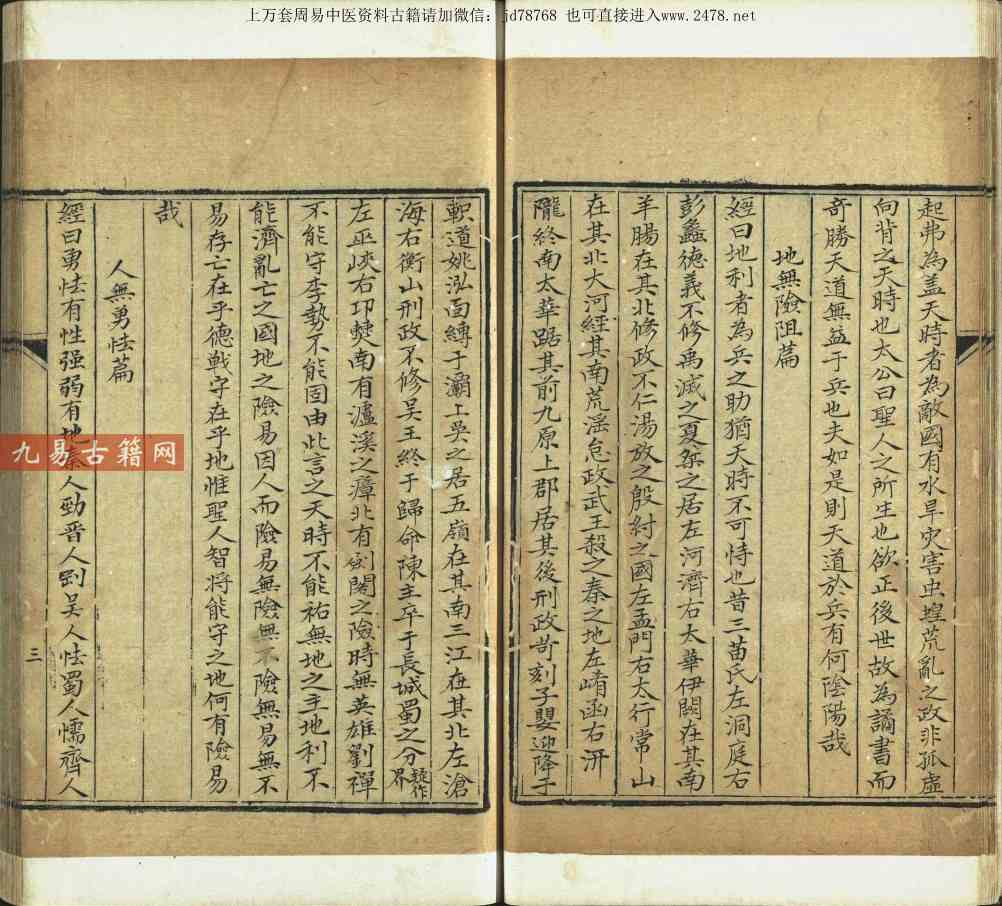 上万套周易中医资料古籍请加微信：jd78768 也可直接进入www.2478.net
起弗為盖天時者為敵國有水旱灾害虫蝗荒亂之政非孤虛
向背之天時也太公曰聖人之所生也欲正後世故為譎書而
奇勝天道無益于兵也夫如是則天道於兵有何陰陽哉
地無險阻篇
經曰地利者為兵之助猶天時不可恃也昔三苗氏左洞庭右
彭蠡德義不修禹滅之夏桀之居左河濟右太華伊闕在其南
羊腸在其北修政不仁湯放之殷紂之國左孟門右太行常山
在其北大河經其南荒滛怠政武王殺之秦之地左崤函右汧
隴終南太華踞其前九原上郡居其後刑政苛刻子嬰迎降于
軹道姚泓面縛于灞上吳之居五嶺在其南三江在其北左滄
海右衡山刑政不修吳王終于歸命陳主卒于長城蜀之分界
左巫峽右邛僰南有瀘溪之瘴北有劍閣之險時無英雄劉禪
不能守李勢不能固由此言之天時不能祐無地之主地利不
能濟亂亡之國地之險易因人而險易無險無不險無易無不
易存亡在乎德戰守在乎地惟聖人智將能守之地何有險易
哉
人無勇怯篇
經曰勇怯有性强弱有地秦人勁晋人剛吳人怯蜀人懦齊人
三
九易古籍网